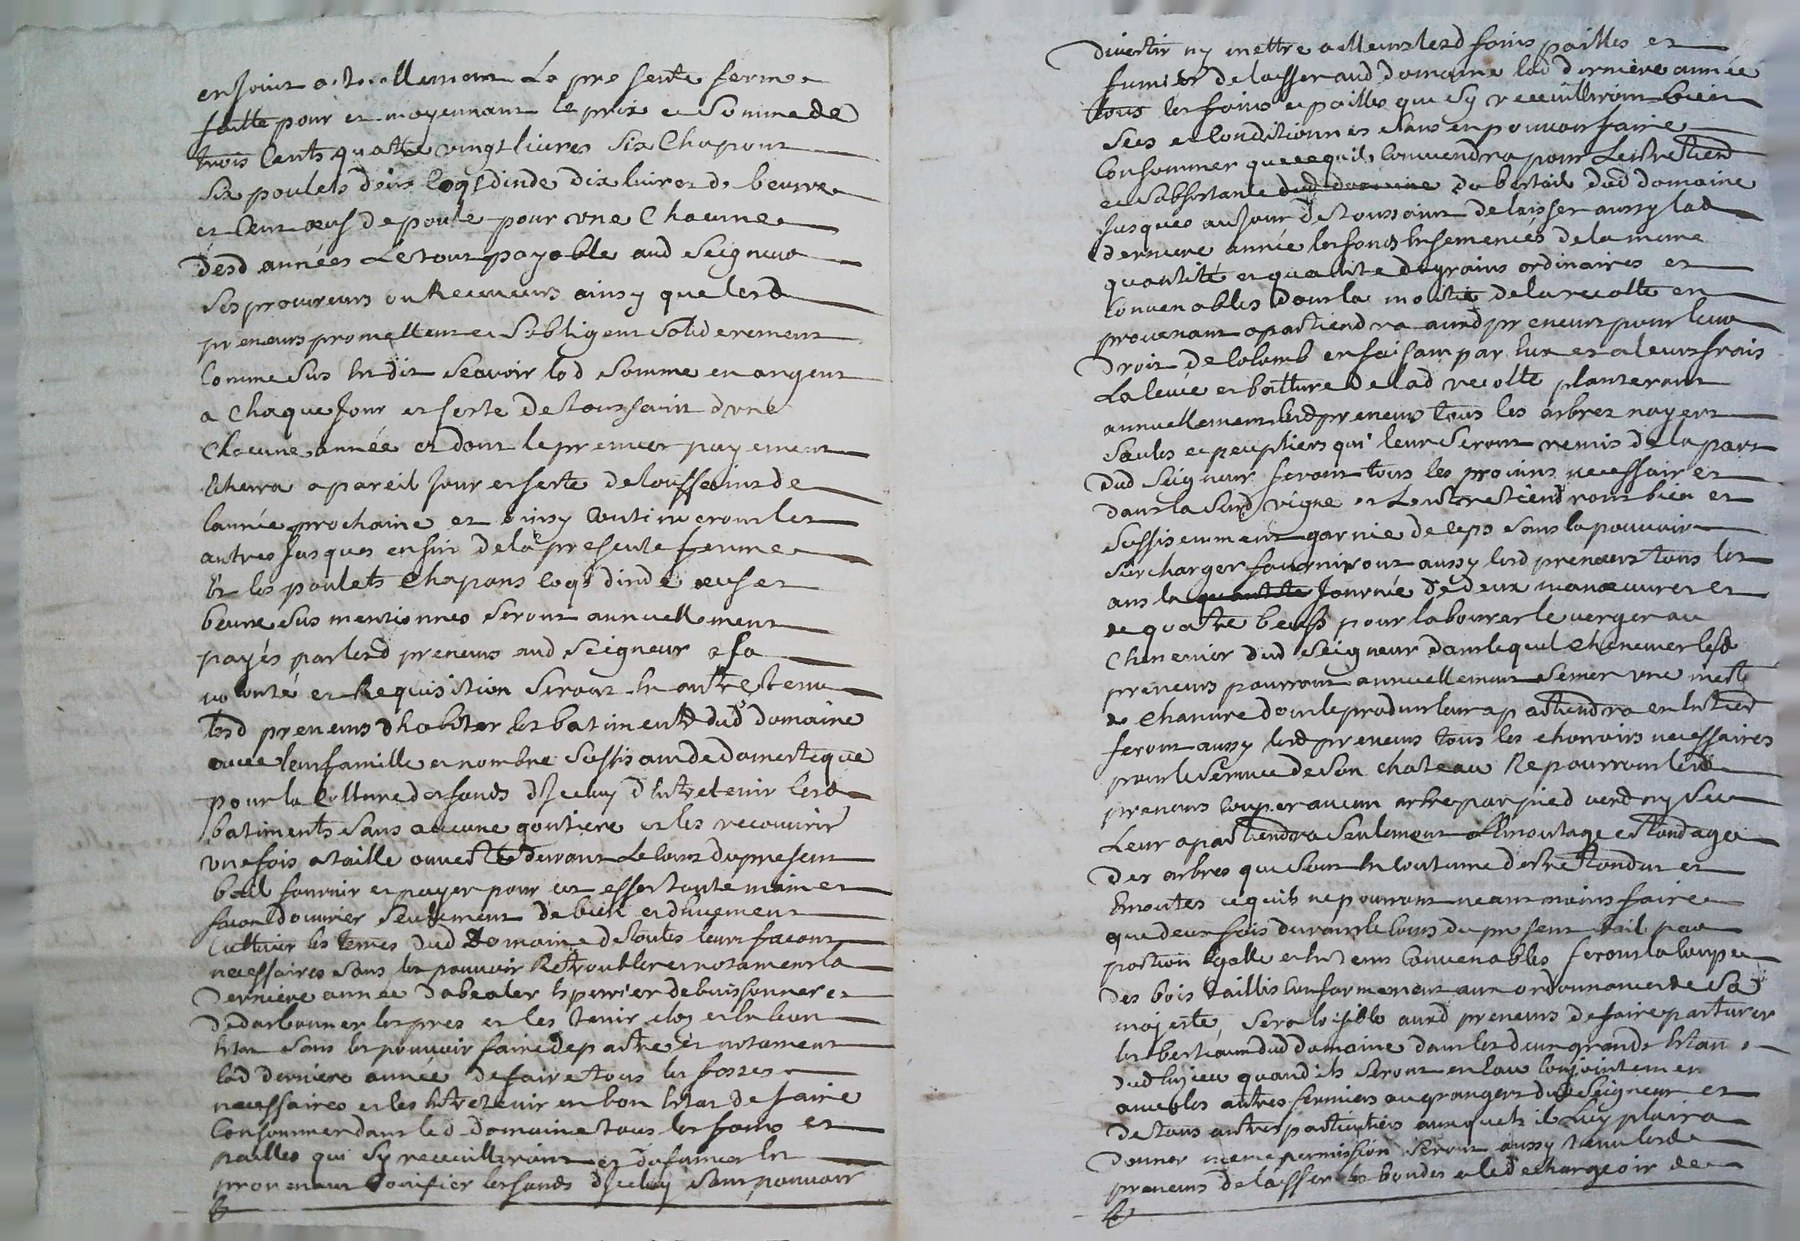 en Jouir actuellement La presente ferme
faitte pour et moyennant le prix et Somme de
trois Cents quatre vingt livres Six Chapons
Six poulets deux Coqs dinde dix livres de beurre
et Cent œufs de poule pour une Chacune
desd années Le tout payable aud Seigneur
Ses procureurs ou Receveurs ainsy que lesd
preneurs promettent et Sobligent Soliderement
Comme Sus est dit Scavoir lad Somme en argent
a Chaque Jour et feste de toussaint dune
Chacune année et dont le premier payement
Echerra a pareil Jour et feste de toussaint de
lannée prochaine et ainsy Continueront les
autres Jusques en fin de la presente ferme
Et les poulets Chapons Coqs dinde œufs et
beurre Sus mentionnes Seront annuellement
payés par lesd preneurs aud Seigneur a sa
volonté et Requisition Seront en outre tenu
lesd preneurs dhabiter les batiments dud domaine
avec leur famille et nombre Suffisant de domestique
pour la Culture des fonds dJceluy dentretenir lesd
batiments Sans aucune goutiere et les recouvrir
une fois a taille ouverte durant Le Cours du present
bail fournir et payer pour cet effet toute main et
facon douvrier Seulement de bien et duement
Cultiver les terres dud Domaine de toutes leurs facons
necessaires Sans les pouvoir Retroubler et notament la
derniere année de buissonner et
darbonner les pres et les tenir clos et en bon
Etat Sans les pouvoir faire depaitre et notament
lad derniere année de faire tous les fosses
necessaires et les Entretenir en bon Etat de faire
Consommer dans led domaine tous les foins et
pailles qui Sy recevilliront et du fumier en
provenant bonifier les fonds dJceluy Sans pouvoir
divertir ny mettre ailleurs lesd foins pailles et
fumier de laisser aud domaine lad derniere année
tous les foins et pailles que Sy recevilliront bien
Secs et Conditionnes Sans en pouvoir faire
Consommer que ce quil Conviendra pour Lentretient
et Subsistance dud domaine du bestail dud domaine
Jusques au Jour de toussaint de laisser aussy lad
derniere année les fonds Ensemencés de la meme
quantité et qualité de grains ordinaires et
Convenables dont la moitié de la recolte en
provenant apartiendra ausd preneurs pour leur
Droit de Colomb en faisant par Eux et a leurs frais
La levée et batture de lad recolte planteront
annuellement lesd preneurs tous les arbres noyers
Saules et peupliers qui leur Seront remis de la part
dud Seigneur feront tous les provins necessaires
dans la Susd vigne et Lentretiendront bien et
Suffisemment garnie de ceps Sans la pouvoir
Surcharger fourniront aussy lesd preneurs tous les
ans la quantite Journée de deux manœuvres et
de quatre bœufs pour labourer le verger au
Chenevier dud Seigneur dans lequel Chenevier lesd
preneurs pourront annuellement Semer une
de Chanvre dont le produit leur apartiendra en Entier
feront aussy lesd preneurs tous les charrois necessaires
pour le Service de Son chateau Ne pourront lesd
preneurs Couper aucun arbre par pied verd ny Sec
Leur apartiendra Seulement Lemoutage et tondage
Des arbres que Sont En Coutume destre tondus et
Emoutes ce quils ne pourront neantmoins faire
que deux fois durant le Cours du present bail par
portion Egalle et En tems Convenables feront la Coupe
des bois taillis Conformement aux ordonnances de Sa
majesté, Sera loisible ausd preneurs de faire paturer
les bestiaux dud domaine dans les deux grands Etan
dud Lieu quand ils Seront en leau Conjointemen
avec les autres fermiers ou grangers dud Seigneur et
de tous autres particuliers auxquels il Luy plaira
donner meme permission Seront aussy tenu lesd
preneurs de laisser les bondes et le dechargeoir de